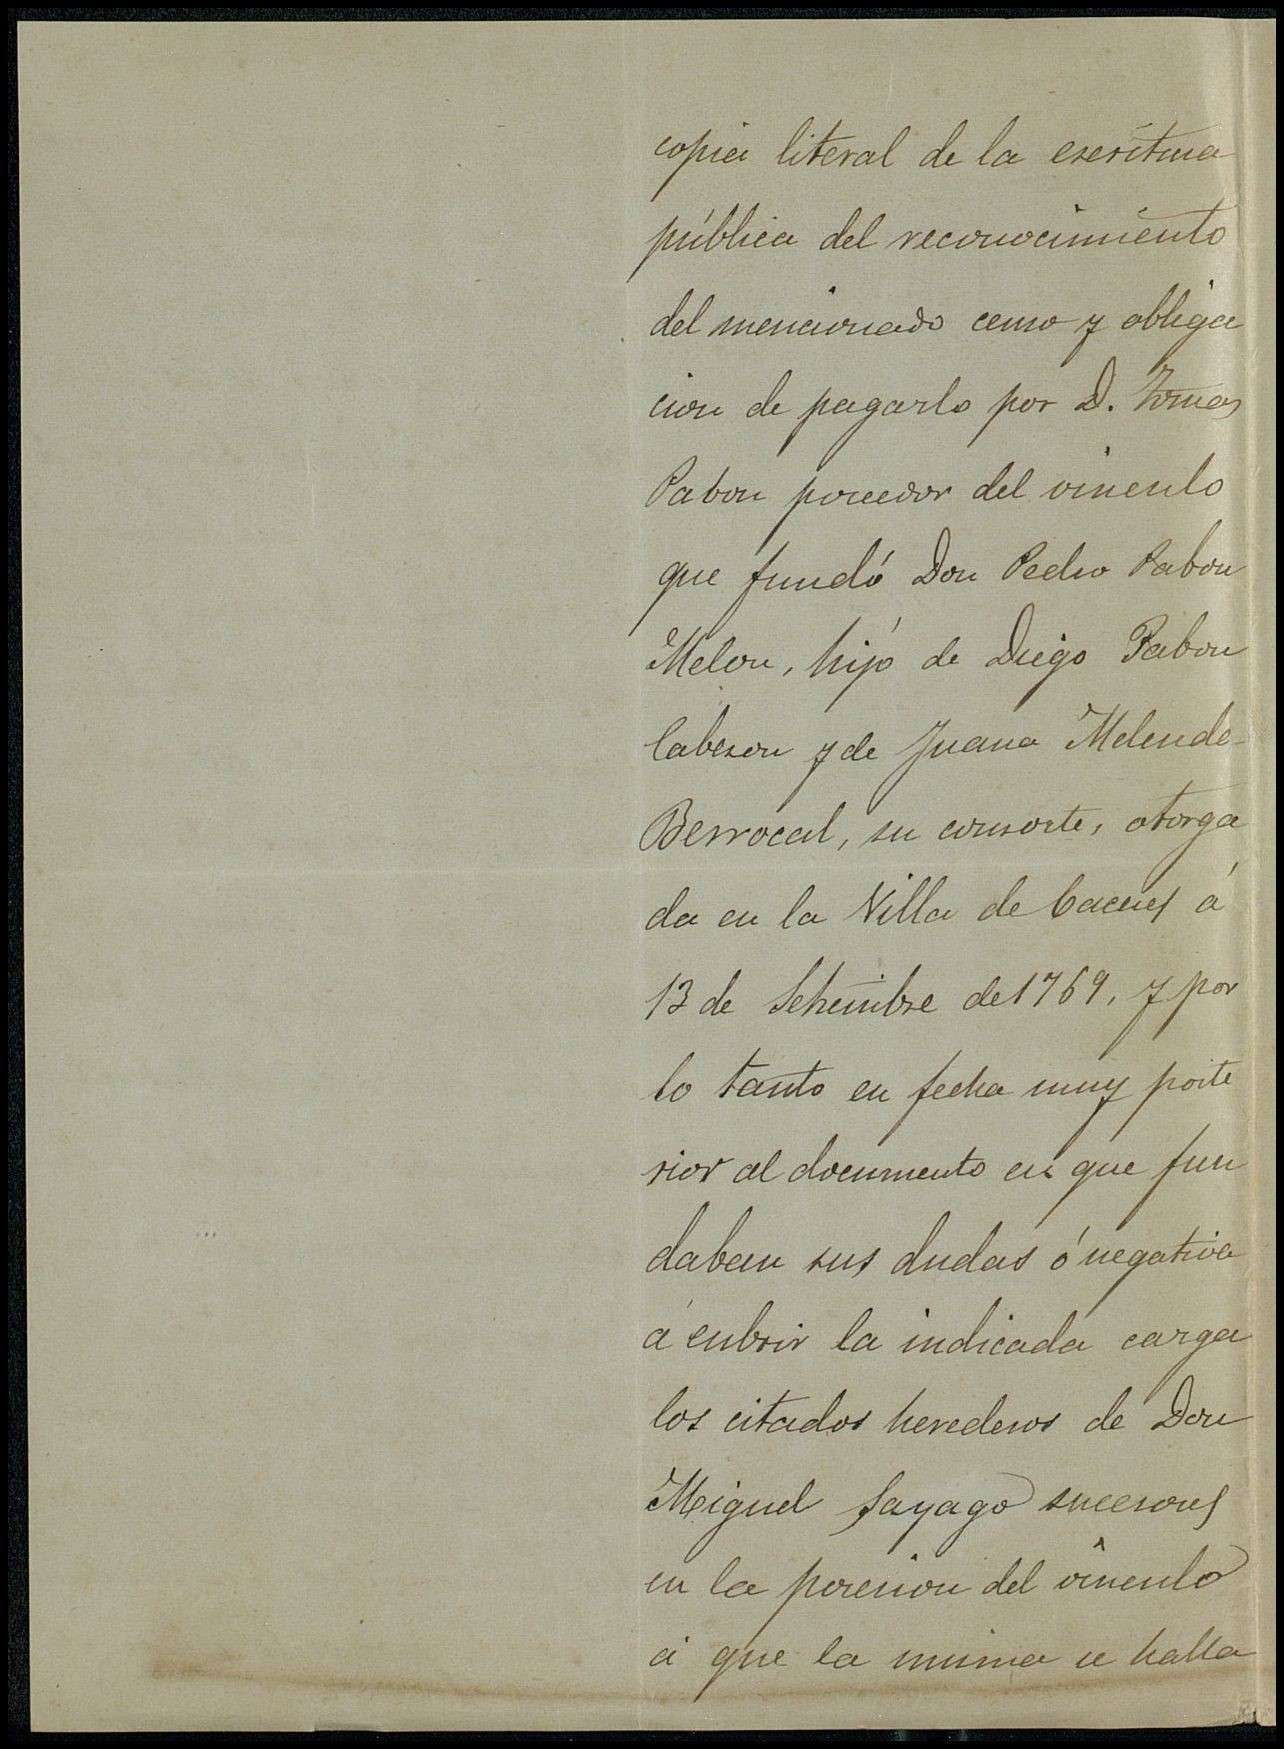 copia literal de la escritura
pública del reconocimiento
del mencionado censo y obliga
cion de pagarlo por D. Tomas
Pabon poseedor del vinculo
que fundó Don Pedro Pabon
Melon, hijo de Diego Pabon
Cabeson y de Juana Melende
Berrocal, su consorte, otorga
da en la Villa de Caceres á
13 de Setiembre de 1769, y por
lo tanto en fecha muy poste
rior al documento en que fun
daban sus dudas ó negativa
á cubrir la indicada carga
los citados herederos de Don
Miguel Sayago sucesores
en la posesion del vinculo
á que la misma se halla